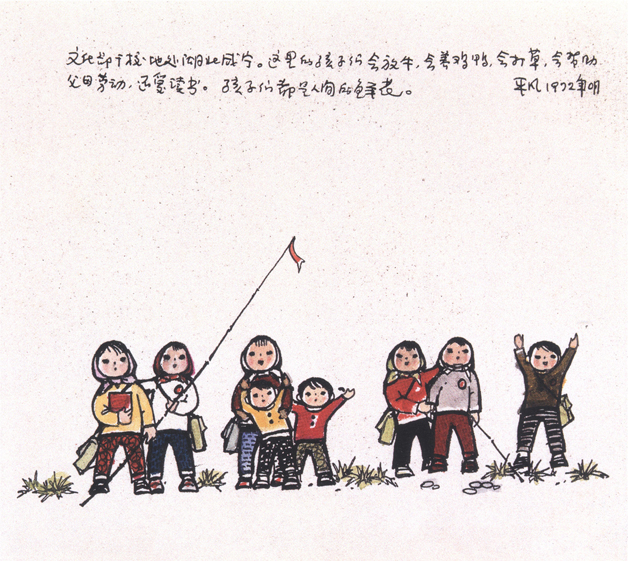 文化部干校地处湖北咸宁。这里的孩子们会放牛,会养鸡鸭,会打草,会帮助
父母劳动,还爱读书。孩子们都是人间的鲜花。 平凡1972年